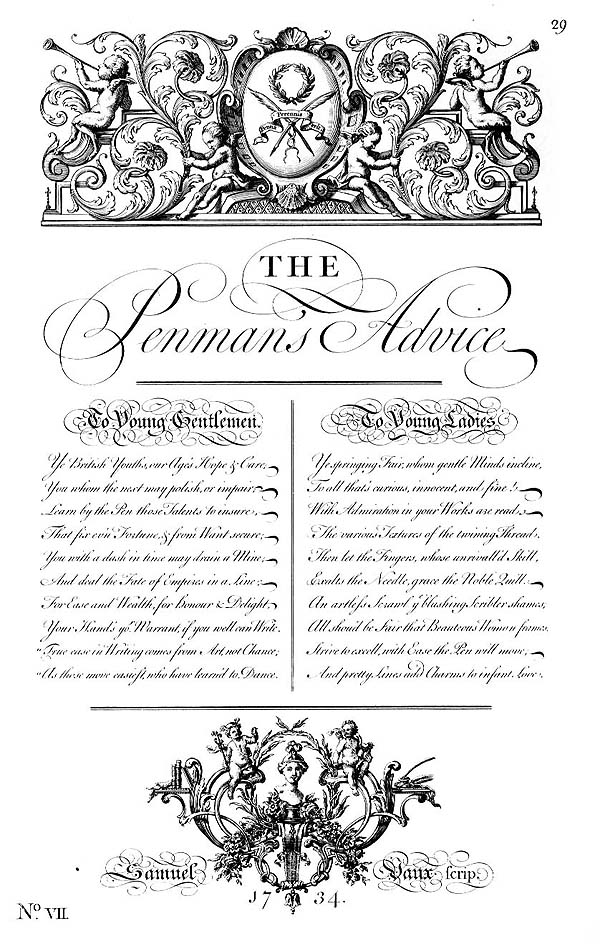 29
Perennis
THE
Penman's Advice
To Young Gentlemen.
Ye British Youths, our Age's Hope & Care,
You whom the next may polish, or impair;
Learn by the Pen those Talents to insure,
That fix ev'n Fortune, & from Want secure;
You with a dash in time may drain a Mine,
And deal the Fate of Empires in a Line;
For Ease and Wealth, for Honour & Delight,
Your Hand's yor. Warrant, if you well can Write.
"True ease in Writing comes from Art, not Chance;
"As those move easiest, who have learn'd to Dance.
To Young Ladies
Ye springing Fair, whom gentle Minds incline,
To all that's curious, innocent, and fine!
With Admiration in your Works are read,
The various Textures of the twining Thread.
Then let the Fingers, whose unrivall'd Skill,
Exalts the Needle, grace the Noble Quill.
An artless Scrawl ye. blushing Scribler shames;
All shou'd be Fair that Beauteous Woman frames.
Strive to excell, with Ease the Pen will move;
And pretty Lines add Charms to infant Love.
Samuel Vaux scrip.
1734.
No. VII.